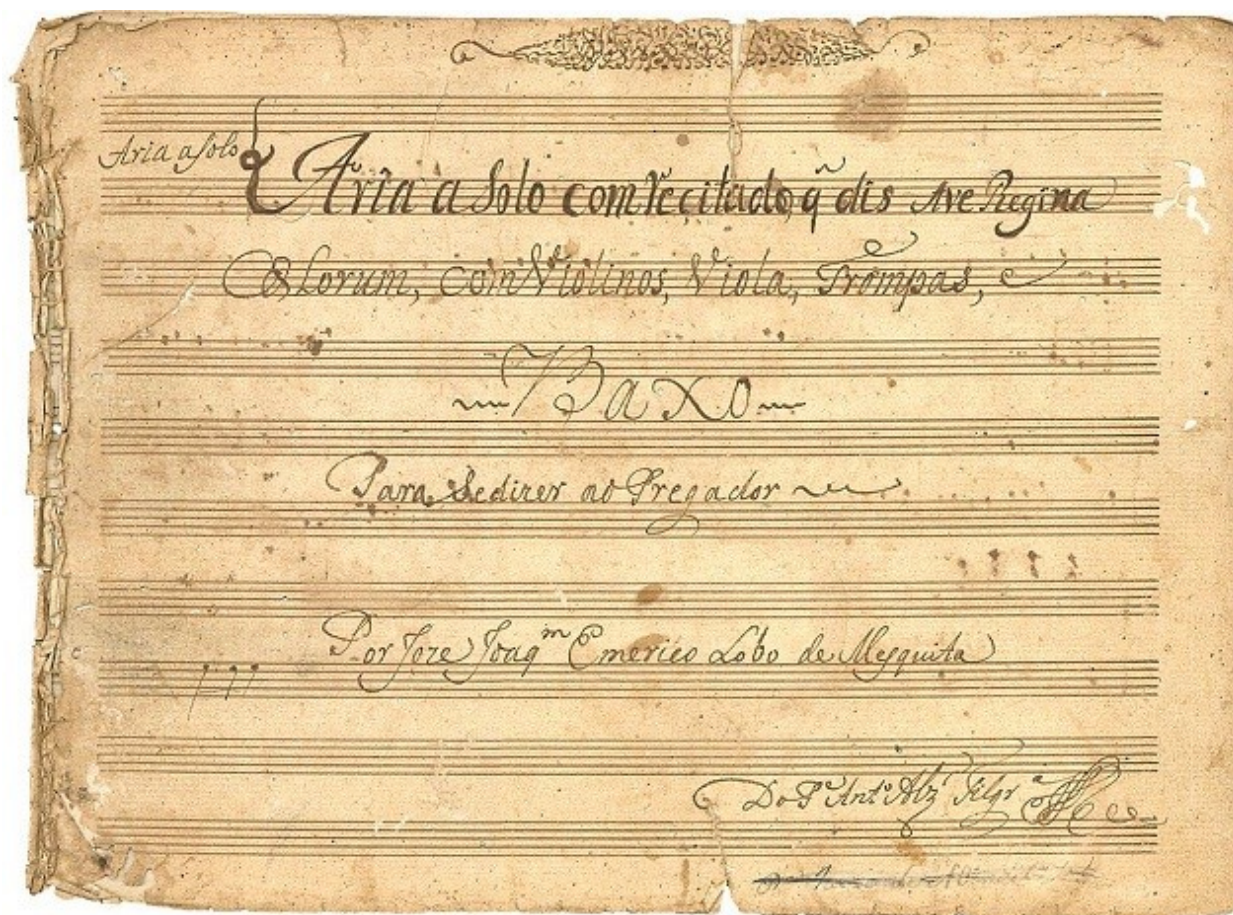 Aria a Solo
Aria a Solo com recitado, q̃ dis Ave Regina
Cælorum, com Violinos, Viola, Trompas, e
Baxo
Para Sedizer ao Pregador
Por Joze Joaqm Emerico Lobo de Mesquita
Do Pe Anto Alz